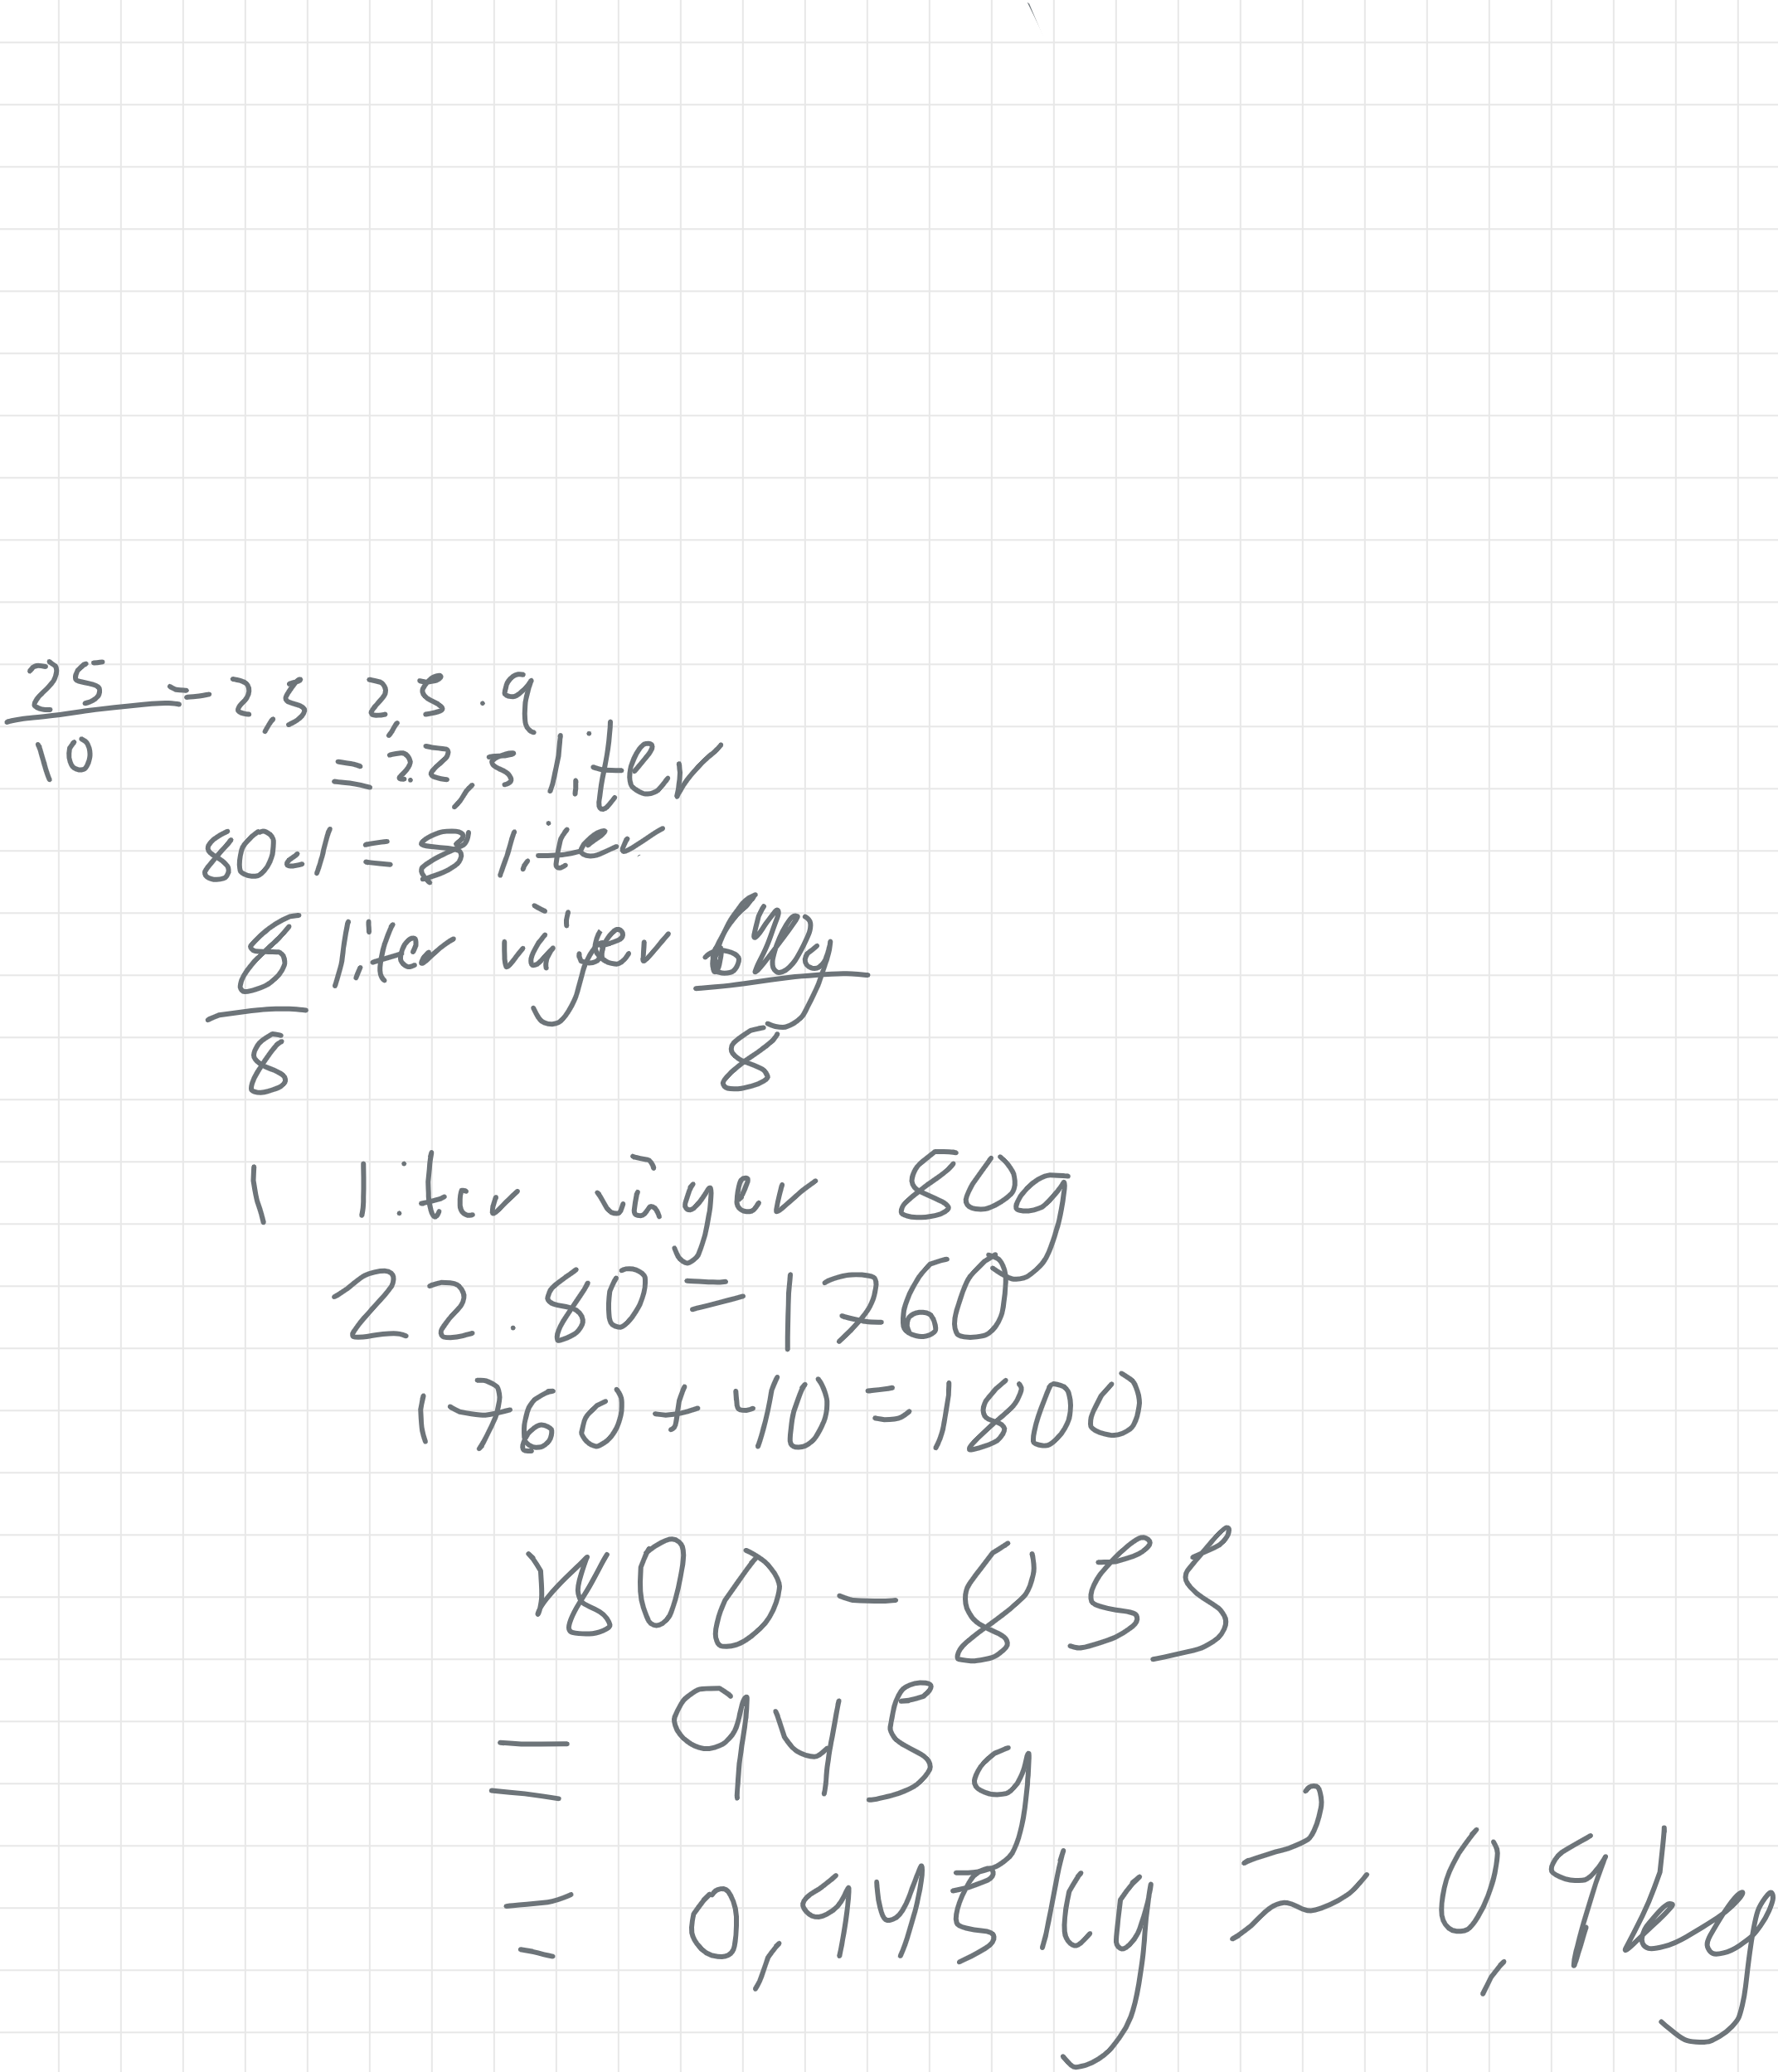 25/10 = 2,5 2,5 · 9
= 22,5 liter
80dl = 8 liter
8/8 liter väger 640g/8
1 liter väger 80g
22 · 80 = 1760
1760 + 40 = 1800
1800 - 855
= 945 g
= 0,945 kg ≈ 0,9 kg